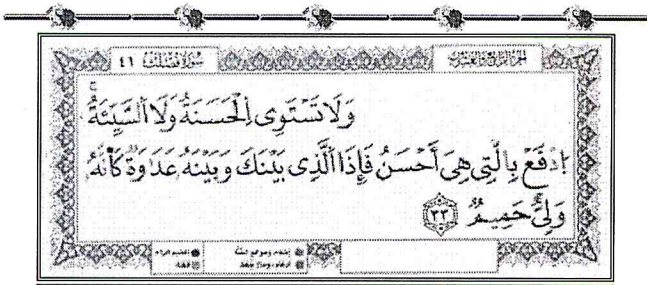 الجزء الرابع والعشرون
سورة فصلت ٤١
وَلَا تَسْتَوِى اِ۬لْحَسَنَةُ وَلَا اَ۬لسَّيِّئَةُۖ
اِ۪دْفَعْ بِالَّتِى هِىَ أَحْسَنُ فَإِذَا اَ۬لَّذِى بَيْنَكَ وَبَيْنَهُۥ عَدَٰوَةٌ كَأَنَّهُۥ
وَلِىٌّ حَمِيمٌۖ ٣٣